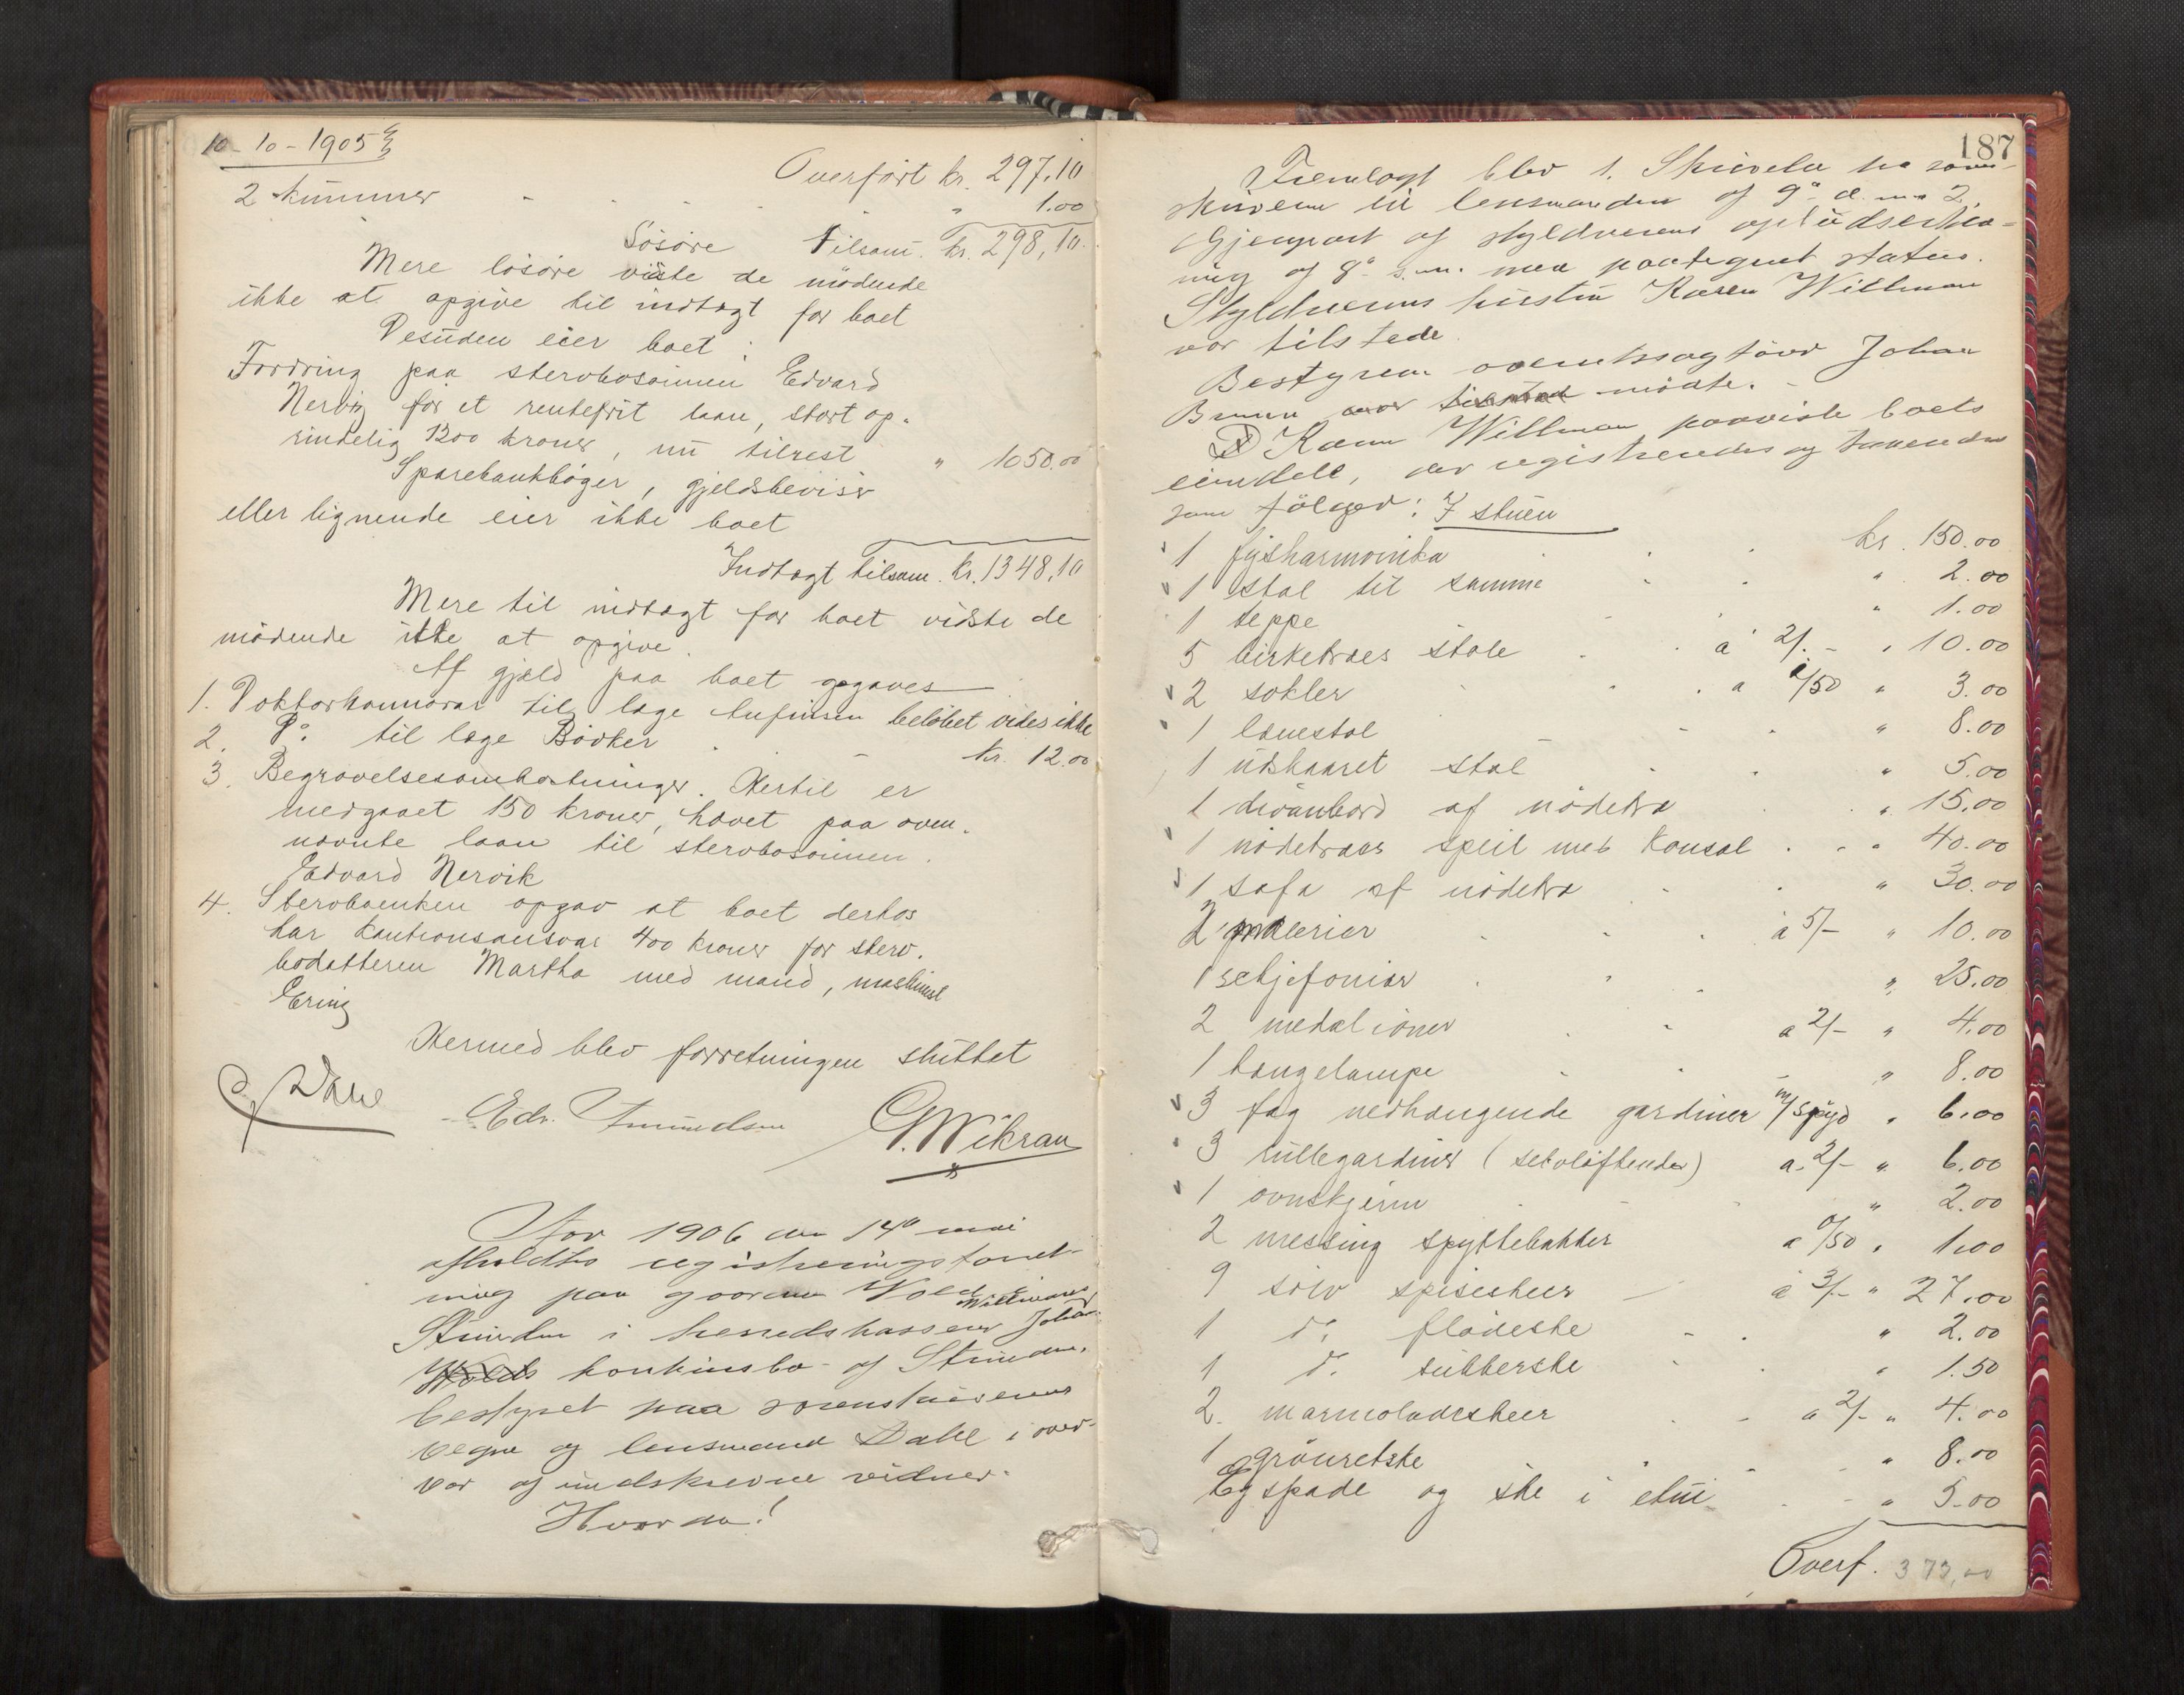 10-10-1905
Overført kr. 297.10
2 kummer " 1.00
Løsøre Tilsam. kr. 298,10.
Mere løsøre viste de mødende
ikke at opgive til indtægt for boet
Desuden eier boet:
Fordring paa stervbosønnen Edvard
Nervig for et rentefrit laan, stort op-
rindelig 1200 kroner, nu tilrest " 1050.00
Sparebankbøger, gjeldsbeviser
eller lignende eier ikke boet
Indtægt tilsam. kr. 1348,10
Mere til indtægt for boet vidste de
mødende ikke at opgive.
Af gjæld paa boet opgaves
1. Doktorhonnorar til læge beløbet vides ikke
2. Do. til læge Bødker - kr. 12.00
3. Begravelsesomkostninger. Hertil er
medgaaet 150 kroner, hævet paa oven-
nævnte laan til stervbosønnen.
Edvard Nervik
4. Stervboenken opgav at boet derhos
har kautionsansvar 400 kroner for sterv-
bodatteren Martha med mand, maskinist
Ering
Hermed blev forretningen sluttet
Dahl Edv. Amundsen G. Wikran
Aar 1906 den 14de mai
afholdtes registreringsforret-
ning paa gaarden Vold
Strinden i herredskasserer Johan Willmanns
Volds konkursbo af Strinden,
bestyret paa sorenskriverens
vegne af lensmand Dahl i over-
vær af undskrevne vidner.
Hvorda!
187
Fremlagt blev 1. Skrivelse fra soren-
skriveren til lensmanden af 9de d. m. 2.
Gjenpart af skyldnerens opbudserklæ-
ring af 8de s. m. med paategnet status.
Skyldnerens hustru Karen Willman
var tilstede.
Bestyreren overretssagfører Johan
Bruun var tilstede mødte. -
Karen Willman paaviste boets
eiendele, der registreredes og taxeredes
som følger: I stuen
1 fysharmonika kr. 150.00
1 stol til samme " 2.00
1 teppe " 1.00
5 birketræes stole a 2/- " 10.00
2 sokler a 1/50 " 3.00
1 lænestol " 8.00
1 udskaaret stol " 5.00
1 divanbord af nødetræ " 15.00
1 nødetræes speil med konsol " 40.00
1 sofa af nødetræ " 30.00
2 malerier à 5/- " 10.00
1 schjefonier " 25.00
2 medalioner a 2/- " 4.00
1 hængelampe " 8.00
3 fag nedhængende gardiner m/ spyd " 6.00
3 rullegardiner (selvløftende) a 2/- " 6.00
1 ovnskjerm " 2.00
2 messing spyttebakker a 0/50 " 1.00
9 sølv spiseskeer à 3/- " 27.00
1 do. flødeske " 2.00
1 do. sukkerske " 1.50
2 marmoladeskeer a 2/- " 4.00
1 grønretske " 8.00
1 spade og ske i etui " 5.00
Overf. 373,00